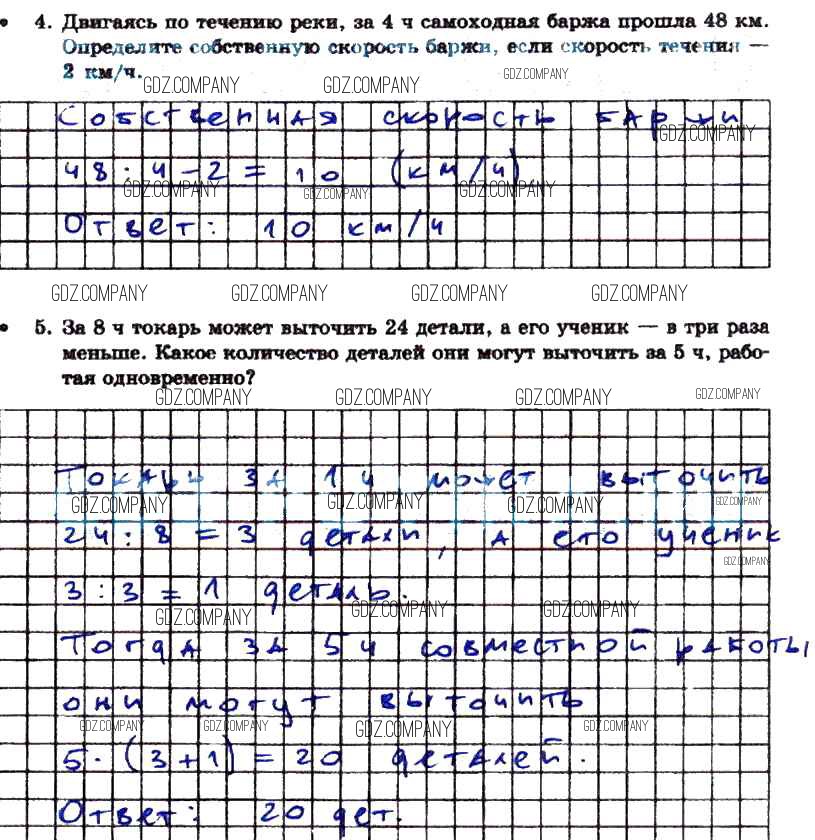 4. Двигаясь по течению реки, за 4 ч самоходная баржа прошла 48 км.
Определите собственную скорость баржи, если скорость течения —
2 км/ч.
GDZ.COMPANY GDZ.COMPANY GDZ.COMPANY
Собственная скорость баржи
GDZ.COMPANY
48 : 4 - 2 = 10 (км/ч)
GDZ.COMPANY GDZ.COMPANY GDZ.COMPANY
Ответ: 10 км/ч
GDZ.COMPANY GDZ.COMPANY GDZ.COMPANY GDZ.COMPANY
5. За 8 ч токарь может выточить 24 детали, а его ученик — в три раза
меньше. Какое количество деталей они могут выточить за 5 ч, рабо-
тая одновременно?
GDZ.COMPANY GDZ.COMPANY GDZ.COMPANY GDZ.COMPANY
Токарь за 1 ч может выточить
GDZ.COMPANY GDZ.COMPANY GDZ.COMPANY GDZ.COMPANY
24 : 8 = 3 детали, а его ученик
GDZ.COMPANY
3 : 3 = 1 деталь.
GDZ.COMPANY GDZ.COMPANY GDZ.COMPANY
Тогда за 5 ч совместной работы
они могут выточить
GDZ.COMPANY GDZ.COMPANY GDZ.COMPANY GDZ.COMPANY
5 · (3 + 1) = 20 деталей.
Ответ: 20 дет.